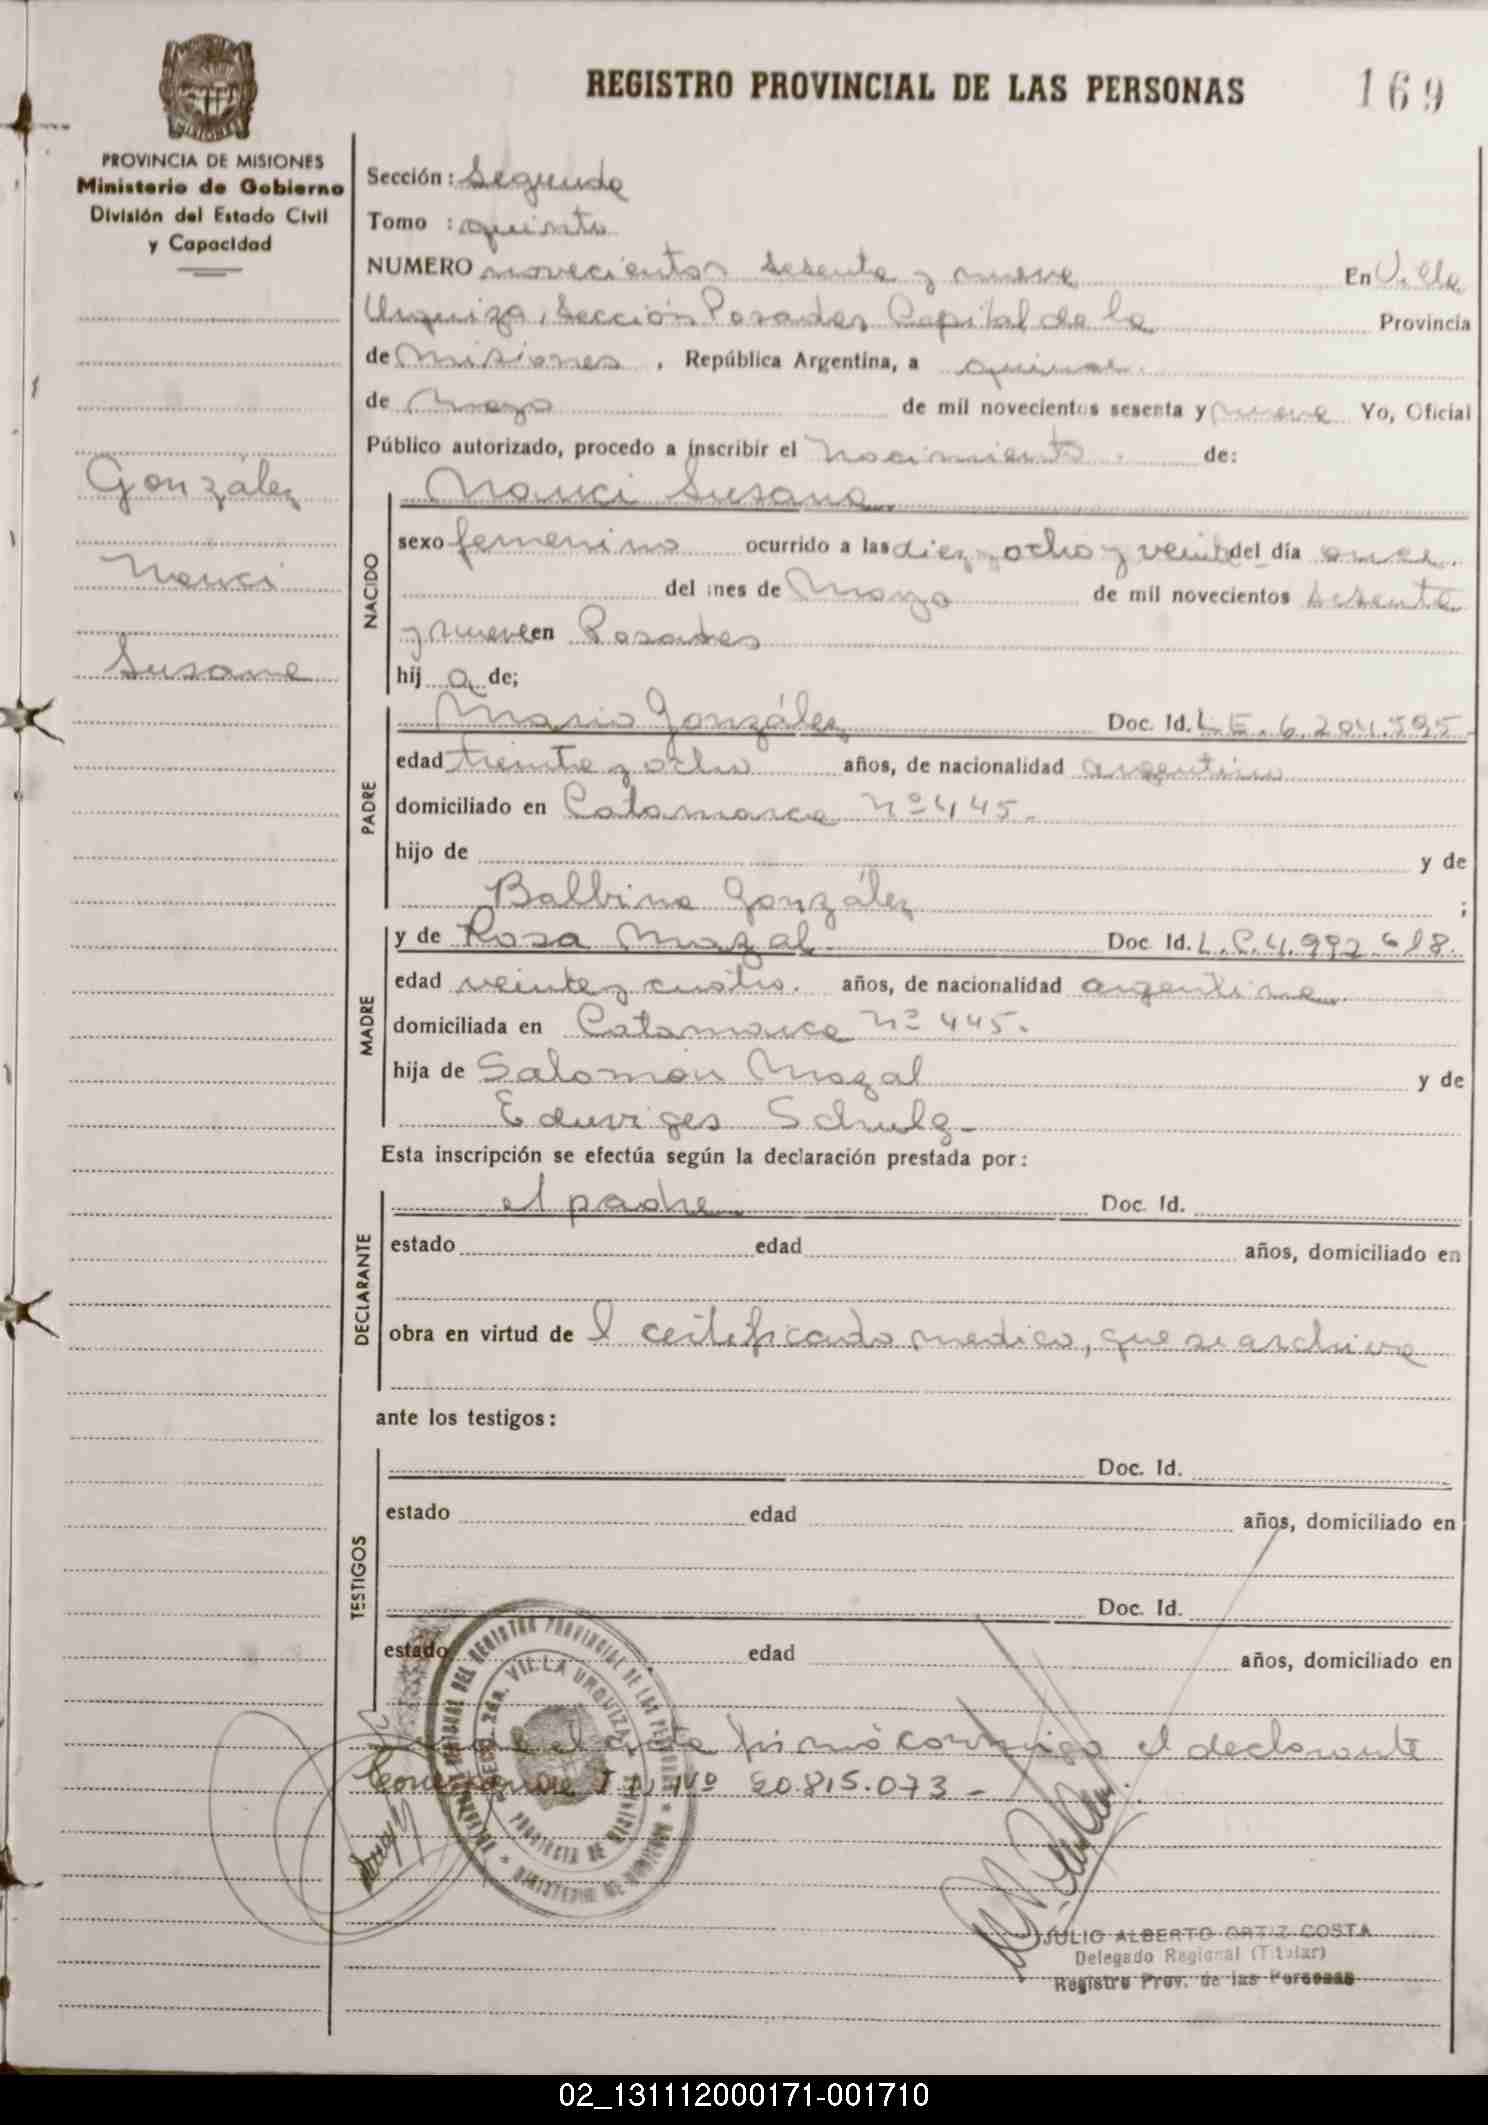 REGISTRO PROVINCIAL DE LAS PERSONAS
169
MISIONES
PROVINCIA DE MISIONES
Ministerio de Gobierno
División del Estado Civil
y Capacidad
González
Nanci
Susana
Sección: Segunda
Tomo : quinto
NUMERO novecientos sesenta y nueve En Villa
Urquiza, Sección Posadas Capital de la Provincia
de Misiones, República Argentina, a quince
de Mayo de mil novecientos sesenta y nueve Yo, Oficial
Público autorizado, procedo a inscribir el nacimiento de:
NACIDO
Nanci Susana
sexo femenino ocurrido a las diez y ocho y veinte del día once
del mes de Mayo de mil novecientos sesenta
y nueve en Posadas
hij a de;
PADRE
Mario González Doc. Id. L.E. 6.204.595
edad treinta y ocho años, de nacionalidad argentino
domiciliado en Catamarca nº 445.
hijo de y de
Balbina González ;
MADRE
y de Rosa Mazal. Doc. Id. L.C. 4.992.618.
edad veinte y cuatro. años, de nacionalidad argentina
domiciliada en Catamarca nº 445.
hija de Salomón Mazal y de
Eduviges Schulz-
Esta inscripción se efectúa según la declaración prestada por:
DECLARANTE
el padre Doc. Id.
estado edad años, domiciliado en
obra en virtud de l certificado medico, que se archiva
ante los testigos:
TESTIGOS
Doc. Id.
estado edad años, domiciliado en
Doc. Id.
estado edad años, domiciliado en
el acta firmó conmigo el declarante
I.N. Nº 20.815.073-
REGISTRO PROVINCIAL DE LAS PERSONAS
2da. VILLA URQUIZA
PROVINCIA DE MISIONES
MINISTERIO DE GOBIERNO
JULIO ALBERTO ORTIZ COSTA
Delegado Regional (Titular)
Registro Prov. de las Personas
02_131112000171-001710